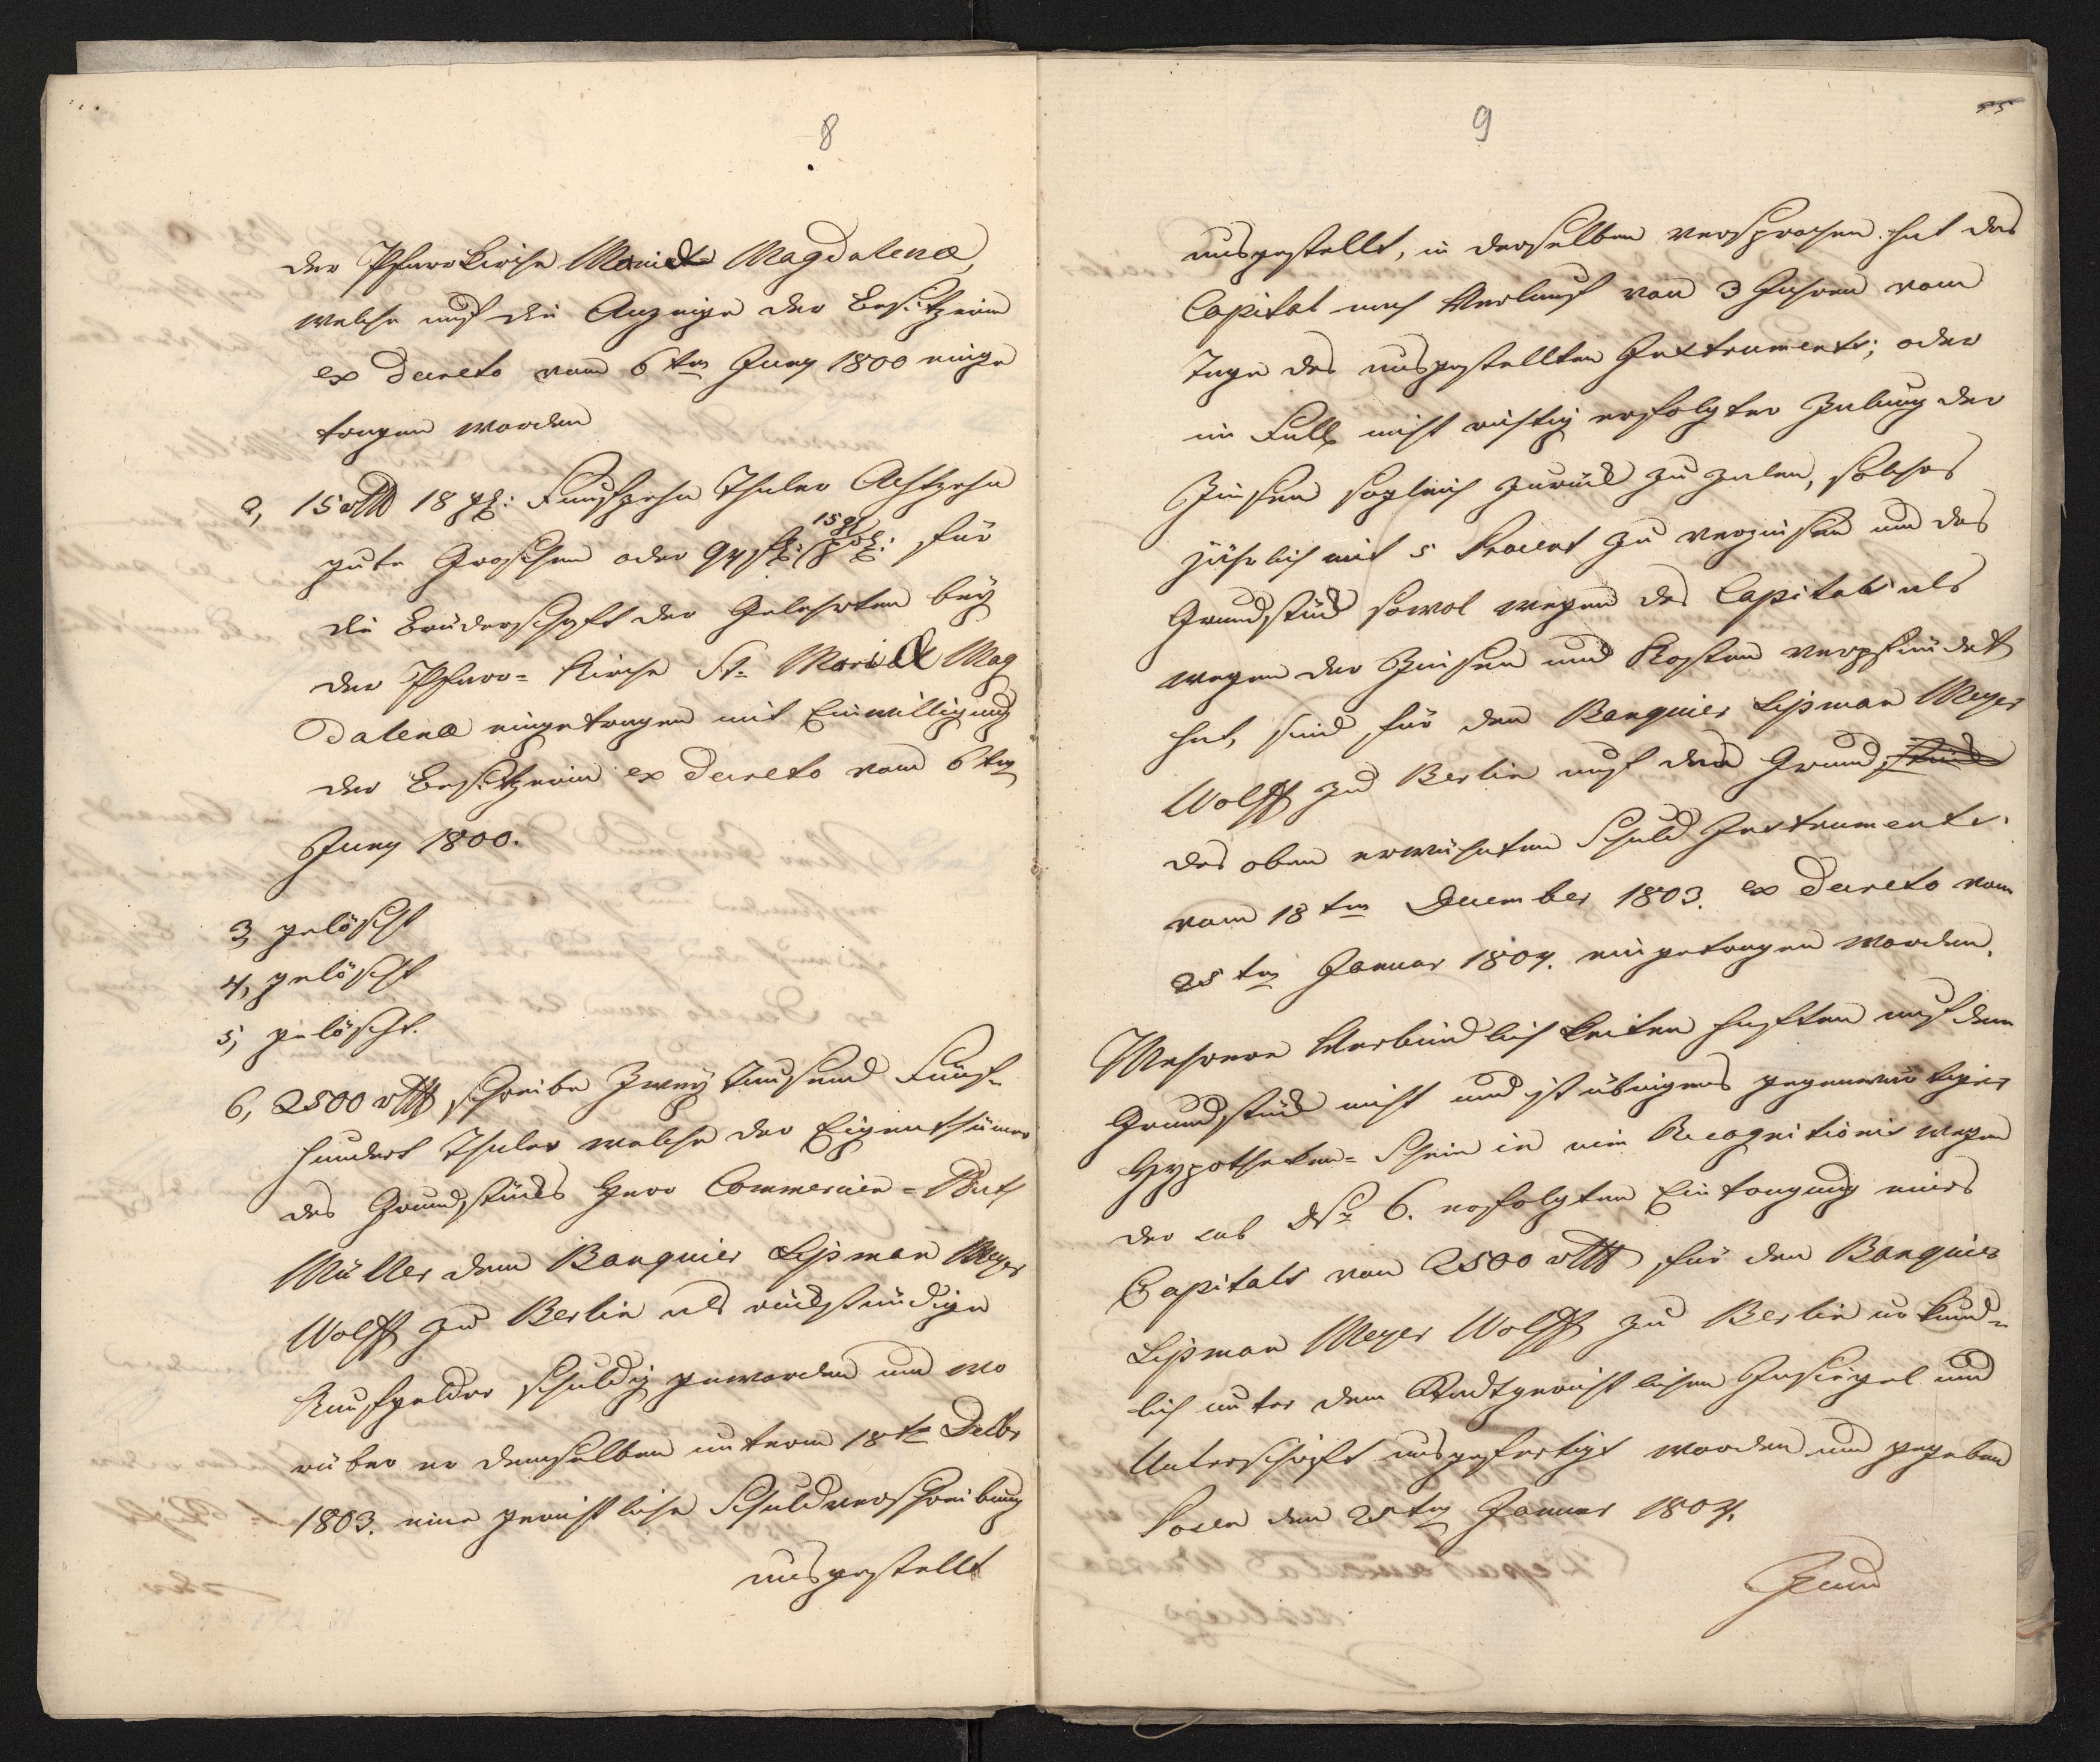 8
der Pfarrkirche Mariae Magdalenae,
welche auf die Anzeige der Besitzerin
ex Decreto vom 6ten Juny 1800 einge
tragen worden
2, 15 rthlr 18 ggr: Funfzehn Thaler Achtzehn
gute Groschen oder 94 fl: 15 gr pol: für
die Brüderschaft der Gelehrten bey
der Pfarr= Kirche St. Mariae Mag
dalenae eingetragen mit Einwilligung
der Besitzerin ex Decreto vom 6ten
Juny 1800.
3, gelöscht
4, gelöscht
5, gelöscht.
6, 2500 rthlr schreibe Zwey Tausend Fünf-
hundert Thaler welche der Eigenthümer
des Grundstücks Herr Commercien=Rath
Müller dem Banquier Lipman Meyer
Wolff zu Berlin als rückständige
Kaufgelder schuldig geworden und wo
rüber er demselben unterm 18ten Decbr
1803. eine gerichtliche Schuldverschreibung
ausgestellt
9
ausgestellt, in derselben versprochen hat das
Capital nach Verlauf von 3 Jahren vom
Tage des ausgestellten Instruments; oder
im Fall nicht richtig erfolgter Zalung der
Zinsen sogleich zurück zu zalen, solches
jährlich mit 5 Procent zu verzinsen und das
Grundstück sowol wegen des Capitals als
wegen der Zinsen und Kosten verpfändet
hat, sind für den Banquier Lipman Meyer
Wolff zu Berlin auf den Grund stück
des oben erwähnten Schuld Instruments
vom 18ten December 1803. ex Decreto vom
25ten Januar 1804. eingetragen worden.
Mehrere Verbindlichkeiten haften auf dem
Grundstück nicht und ist übrigens gegenwärtiger
Hypotheken= Schein in vim Recognitionis wegen
der sub No 6. erfolgten Eintragung eines
Capitals von 2500 rthlr für den Banquier
Lipman Meyer Wolff zu Berlin urkund-
lich unter dem Stadtgerichtlichen Insiegel und
Unterschrift ausgefertigt worden und gegeben
Posen den 25ten Januar 1804.